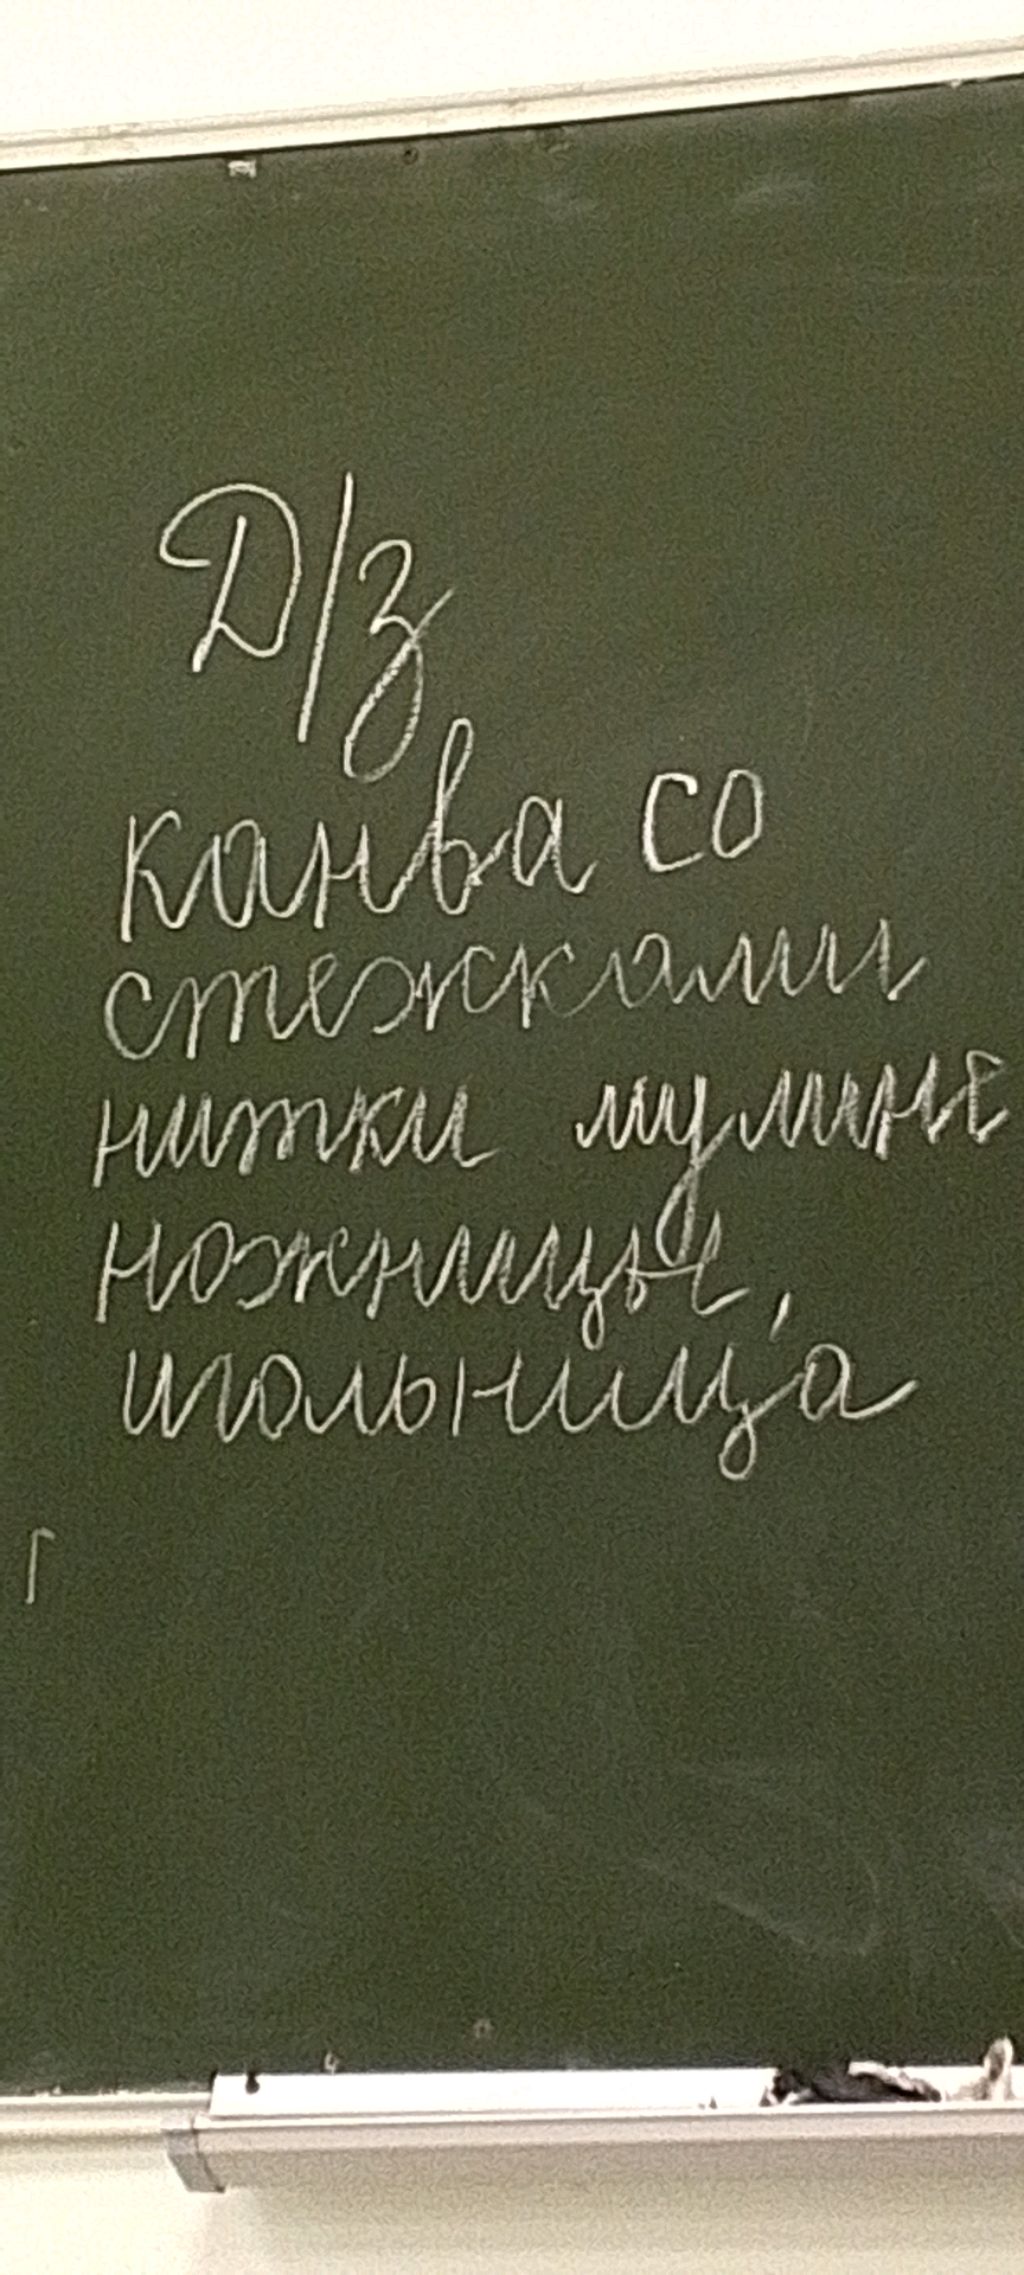 Д/з
канва со
стежками
нитки мулине
ножницы,
игольница
Г